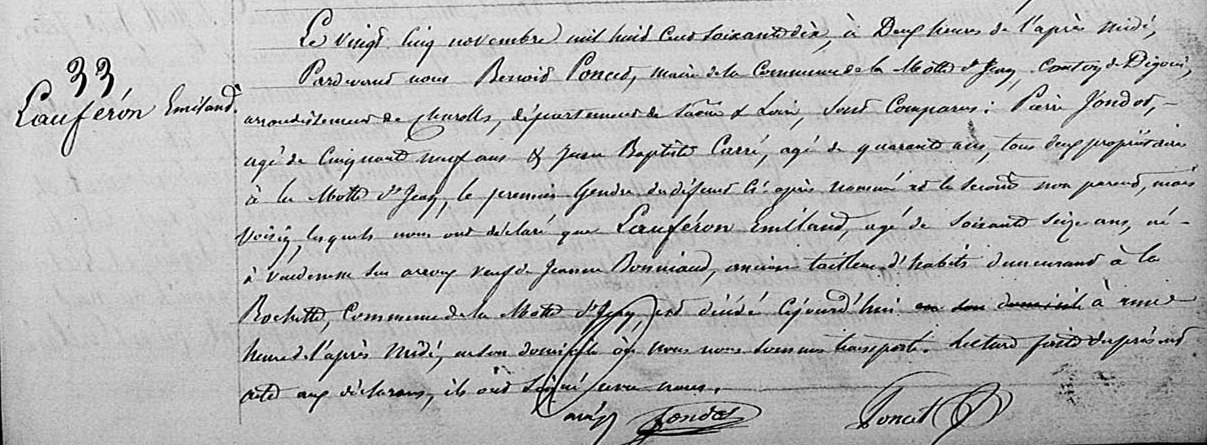 33
Lauféron Emiland.
Le vingt cinq novembre mil huit cent soixante dix, à Deux heures de l'après midi,
Pardevant nous Benoit Poncet, maire de la Commune de la Motte St Jean, Canton de Digoin,
arrondissement de Charolles, département de Saône & Loire, sont comparus : Pierre Jondot, -
agé de Cinquante neuf ans & Jean Baptiste Carré, agé de quarante ans, tous deux propriétaires
à la Motte St Jean, le premier Gendre du défunt ci après nommé et le second non parent, mais
voisin, lesquels nous ont déclaré que Lauféron Emiland, agé de soixante seize ans, né -
à vendenesse sur arroux veuf de Jeanne Bonniaud, ancien tailleur d'habits demeurant à la
Rochette, Commune de la Motte St Jean, est décédé cejourd'hui en son domicile à une
heure de l'après midi, en son domicile où nous nous sommes transporté. Lecture faite du présent
acte aux déclarans, ils ont signé avec nous.
Jondot Poncet